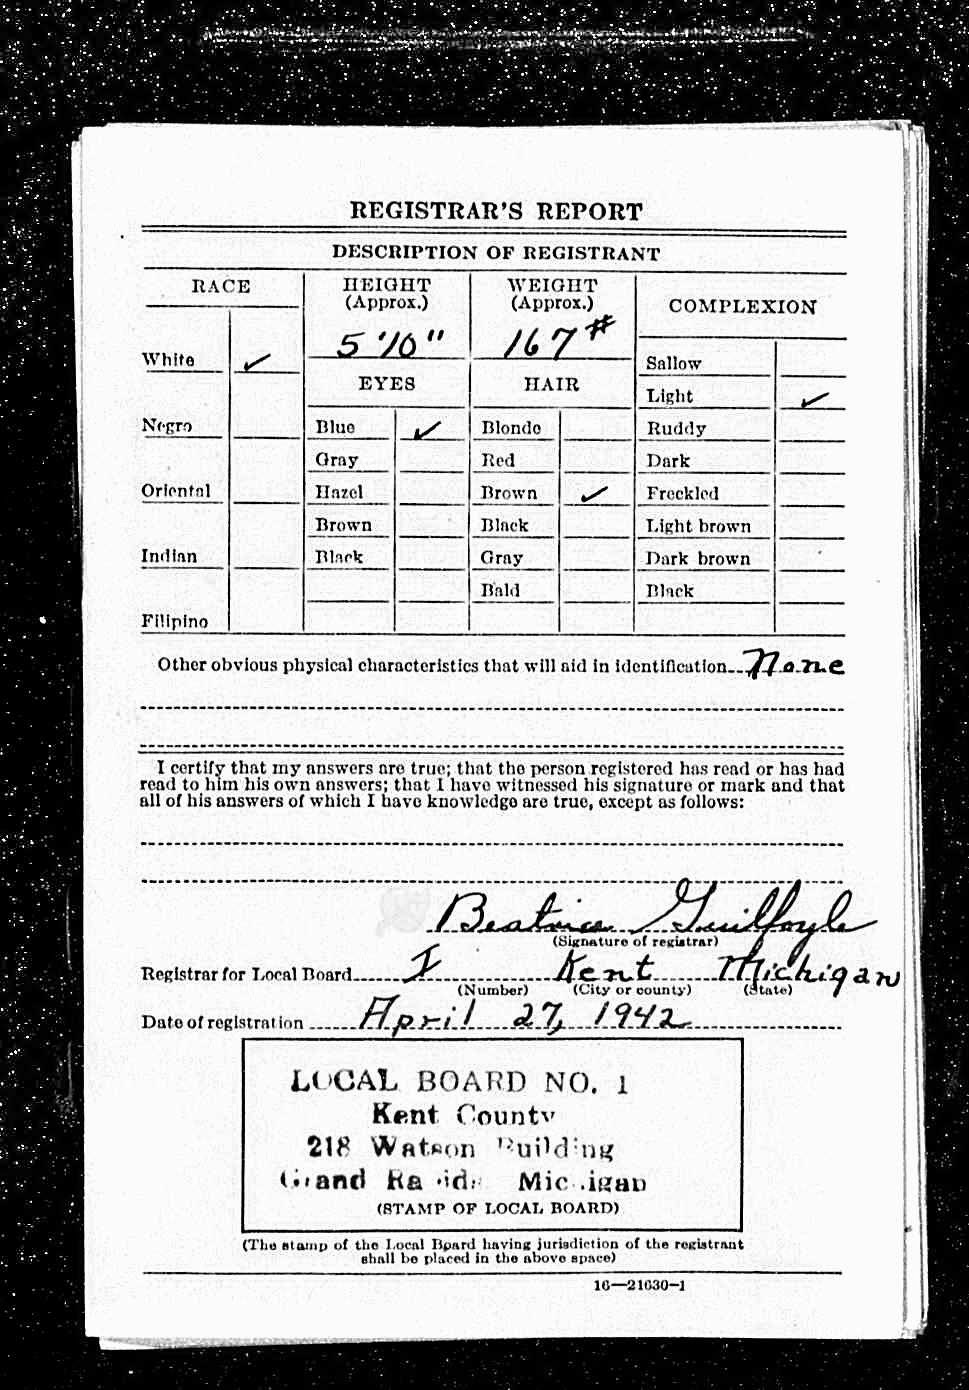 REGISTRAR'S REPORT
DESCRIPTION OF REGISTRANT
RACE
HEIGHT
(Approx.)
WEIGHT
(Approx.)
COMPLEXION
5'10"
167#
White ✓
EYES
HAIR
Sallow
Light ✓
Negro
Blue ✓
Blonde
Ruddy
Gray
Red
Dark
Oriental
Hazel
Brown ✓
Freckled
Brown
Black
Light brown
Indian
Black
Gray
Dark brown
Bald
Black
Filipino
Other obvious physical characteristics that will aid in identification None
I certify that my answers are true; that the person registered has read or has had
read to him his own answers; that I have witnessed his signature or mark and that
all of his answers of which I have knowledge are true, except as follows:
Beatrice Guilfoyle
(Signature of registrar)
Registrar for Local Board I Kent Michigan
(Number) (City or county) (State)
Date of registration April 27, 1942
LOCAL BOARD NO. 1
Kent County
218 Watson Building
Grand Rapids Michigan
(STAMP OF LOCAL BOARD)
(The stamp of the Local Board having jurisdiction of the registrant
shall be placed in the above space)
16—21630-1